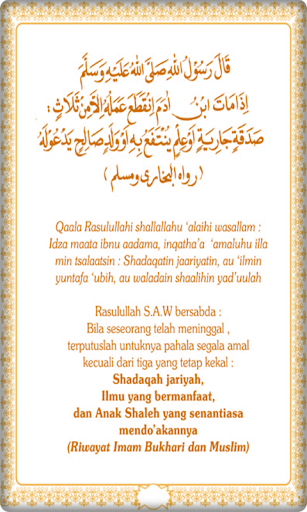 قَالَ رَسُوْلُ اللهِ صَلَّى اللهُ عَلَيْهِ وَسَلَّمَ
اِذَا مَاتَ ابْنُ اٰدَمَ اِنْقَطَعَ عَمَلُهُ اِلَّا مِنْ ثَلَاثٍ :
صَدَقَةٍ جَارِيَةٍ اَوْ عِلْمٍ يُنْتَفَعُ بِهِ اَوْ وَلَدٍ صَالِحٍ يَدْعُوْلَهُ
( رواه البخارى ومسلم )
Qaala Rasulullahi shallallahu 'alaihi wasallam :
Idza maata ibnu aadama, inqatha'a 'amaluhu illa
min tsalaatsin : Shadaqatin jaariyatin, au 'ilmin
yuntafa 'ubih, au waladain shaalihin yad'uulah
Rasulullah S.A.W bersabda :
Bila seseorang telah meninggal ,
terputuslah untuknya pahala segala amal
kecuali dari tiga yang tetap kekal :
Shadaqah jariyah,
Ilmu yang bermanfaat,
dan Anak Shaleh yang senantiasa
mendo'akannya
(Riwayat Imam Bukhari dan Muslim)